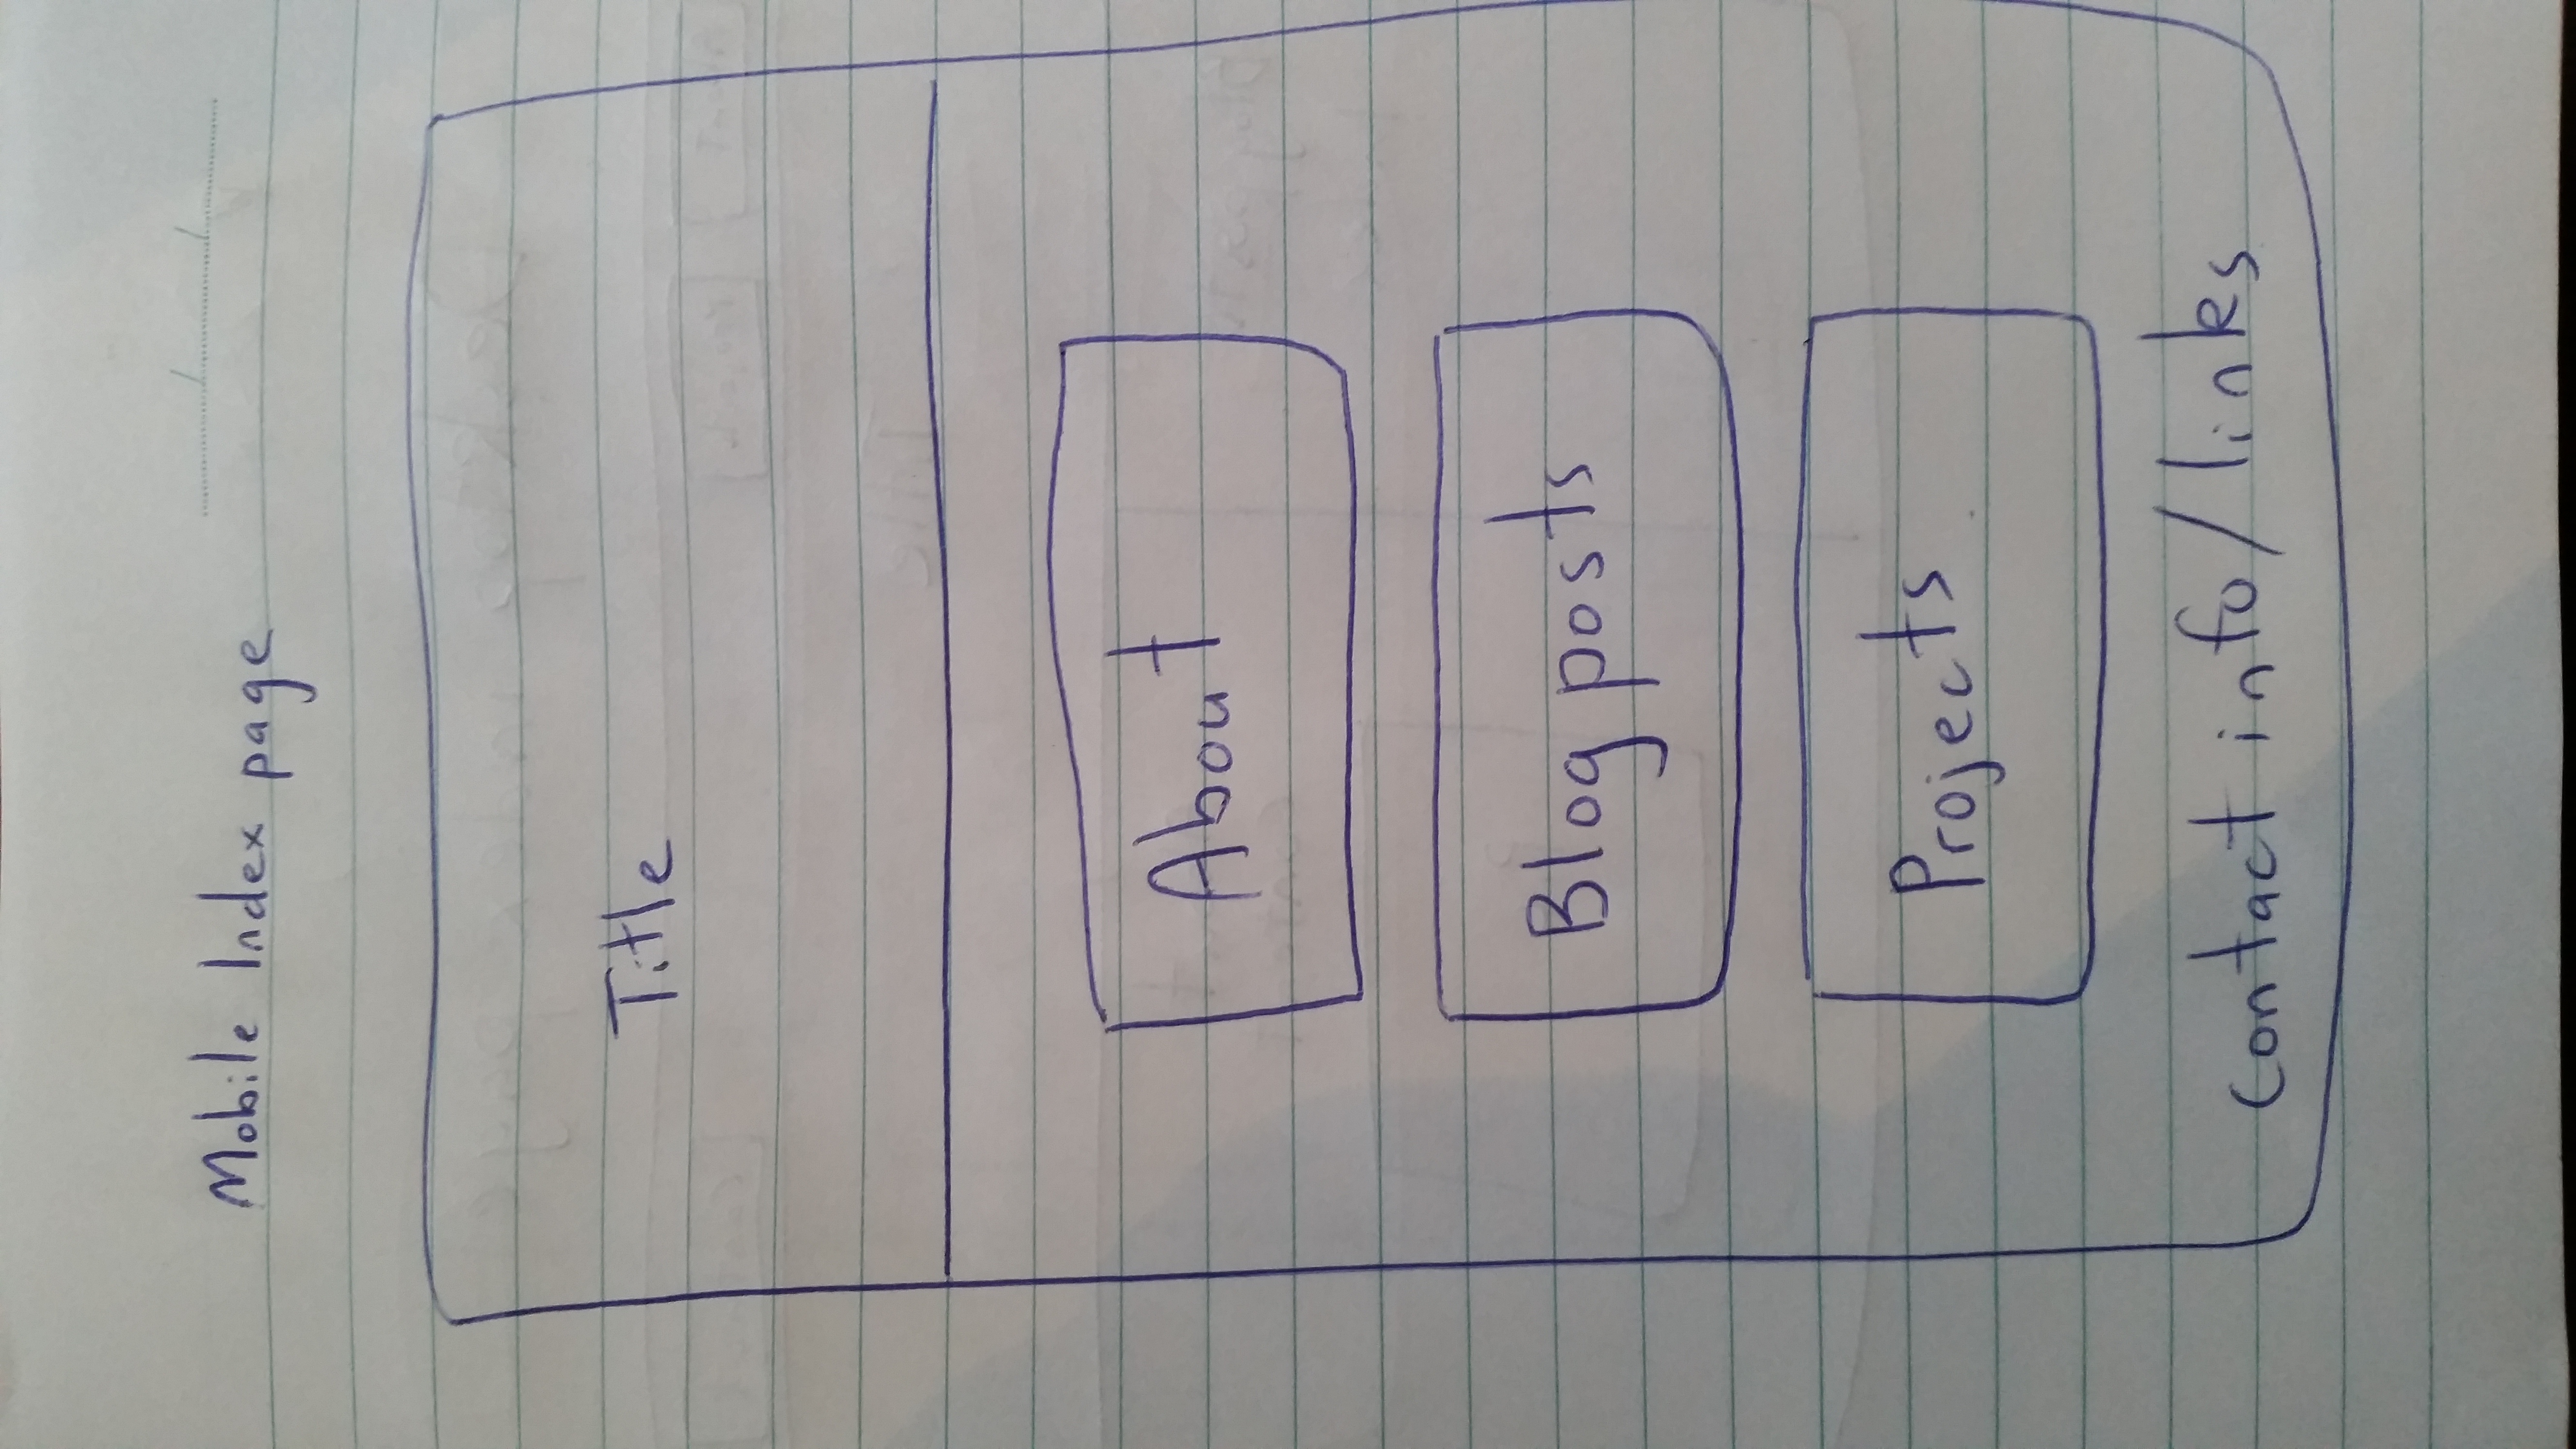 Mobile Index page
Title
About
Blog posts
Projects
contact info/links